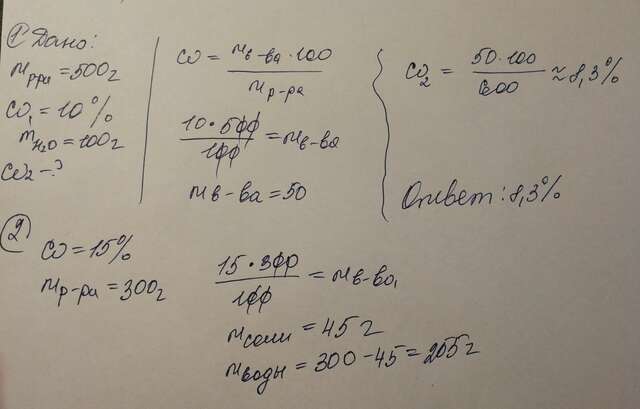 1) Дано:
m р-ра = 500г
ω₁ = 10%
m H₂O = 100г
ω₂ - ?
ω = m в-ва · 100 / m р-ра
10 · 500 / 100 = m в-ва
m в-ва = 50
ω₂ = 50 · 100 / 600 ≈ 8,3%
Ответ: 8,3%
2)
ω = 15%
m р-ра = 300г
15 · 300 / 100 = m в-ва
m соли = 45 г
m воды = 300 - 45 = 255 г